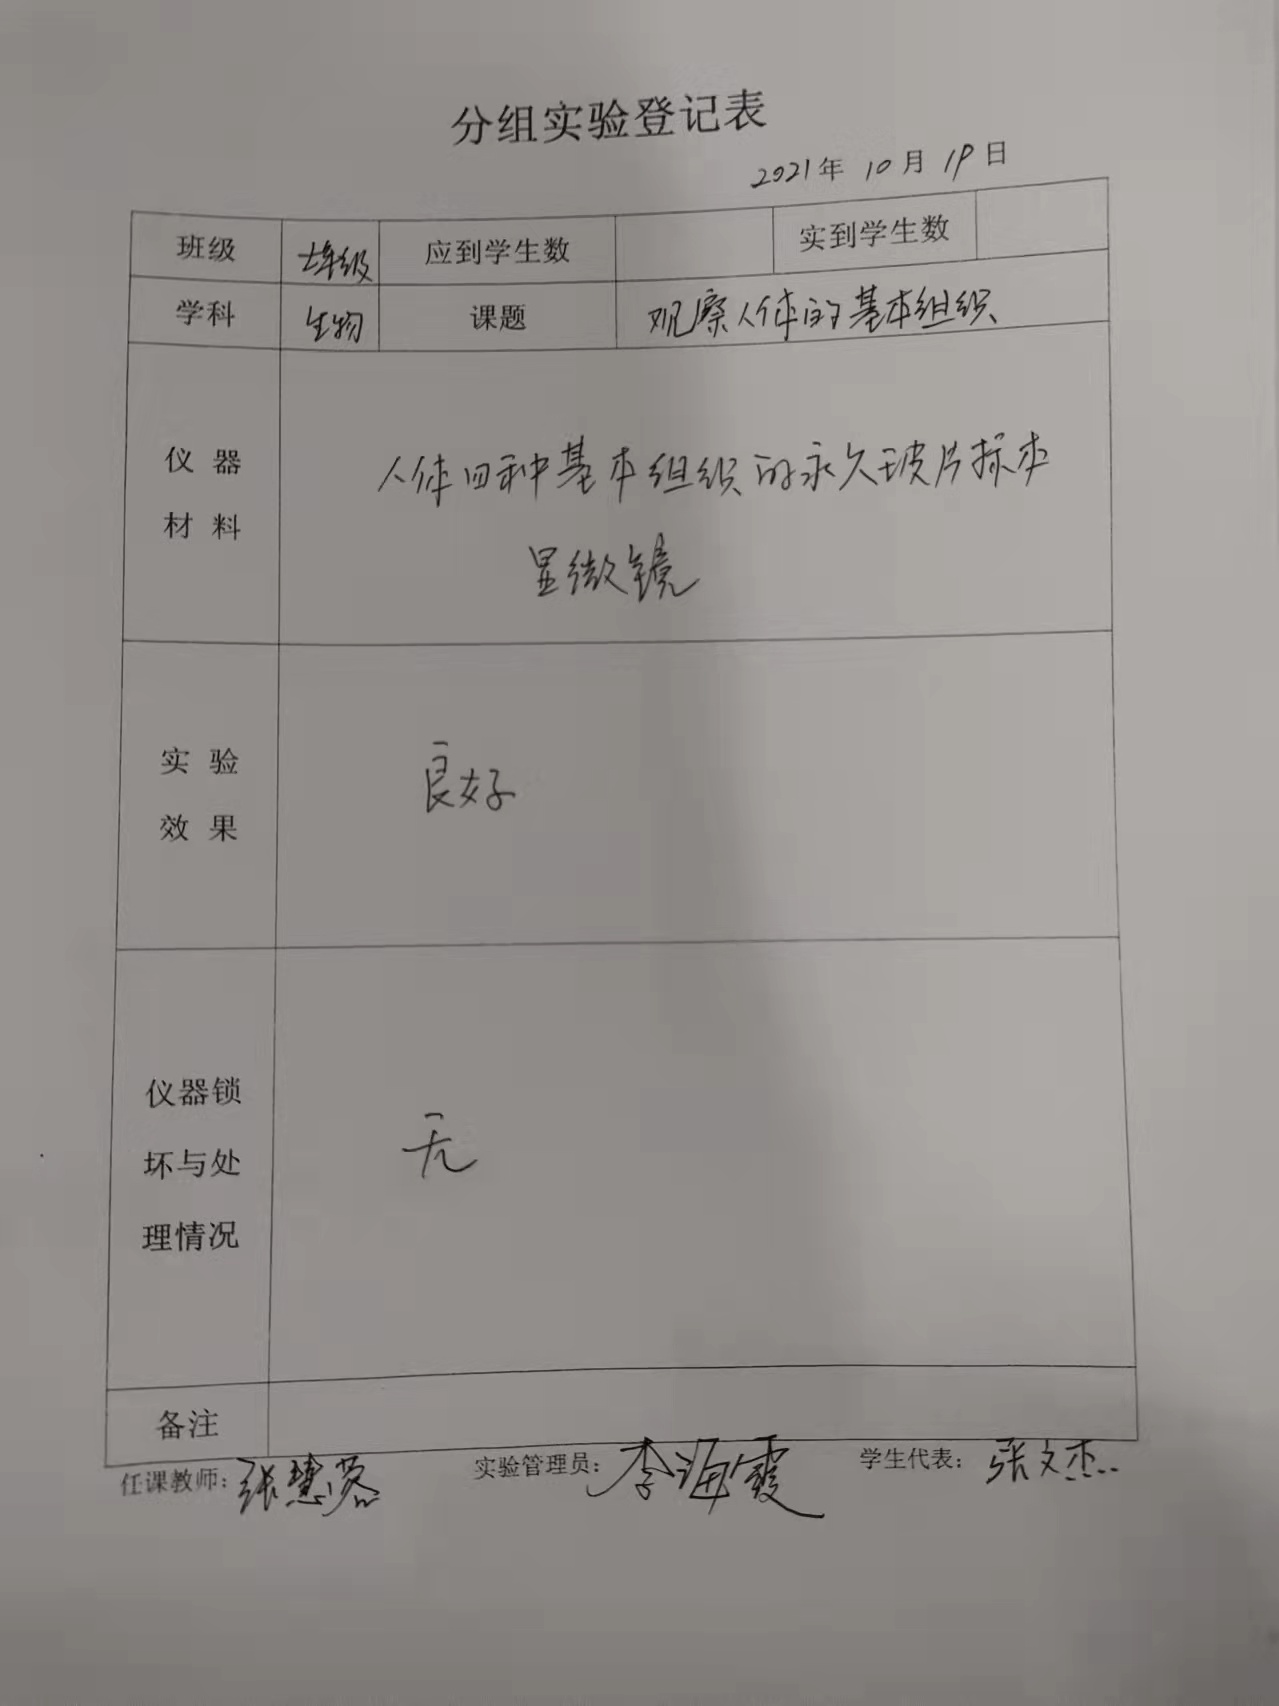 分组实验登记表
2021年 10月 19日
班级 七年级 应到学生数 实到学生数
学科 生物 课题 观察人体的基本组织
仪器 人体四种基本组织的永久玻片标本
材料 显微镜
实验 良好
效果
仪器锁
坏与处 无
理情况
备注
任课教师：张慧蓉 实验管理员：李海霞 学生代表：张文杰